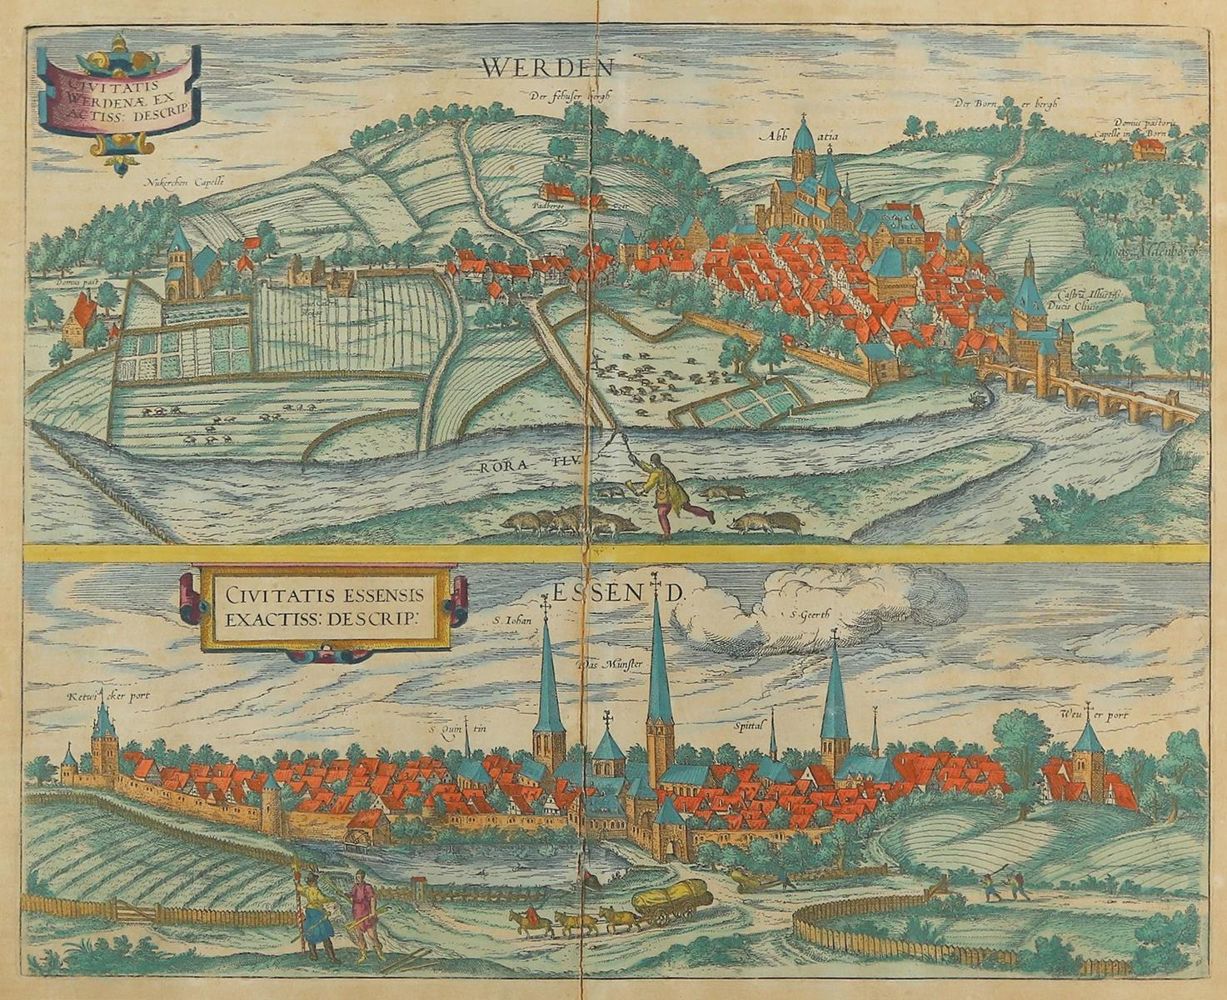 CIVITATIS
WERDENÆ EX
ACTISS: DESCRIP
WERDEN
Der Born er bergh
Abb atia
Domus pastoris
Capelle in Born
Nukerchen Capelle
Padberge
Domus past
Castrũ Illustriss:
Ducis Clivie
RORA FLV.
CIVITATIS ESSENSIS
EXACTISS: DESCRIP:
ESSEND
S. Iohan
S. Geerth
Das Munster
Ketwicker port
S. Quintin
Spittal
port